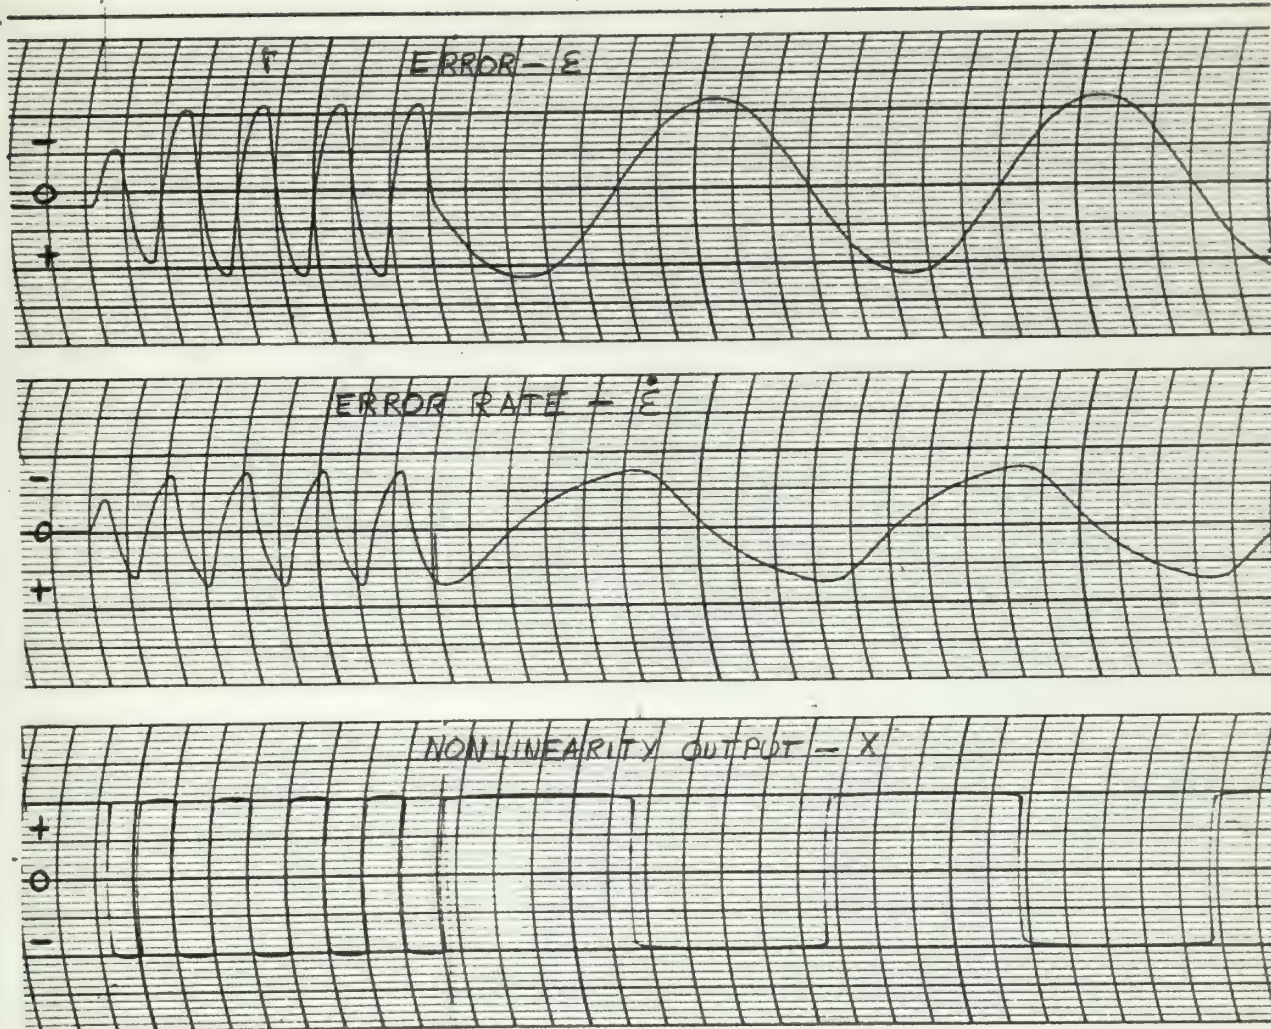 ERROR - ε
-
0
+
ERROR RATE - ε̇
-
0
+
NONLINEARITY OUTPUT - X
+
0
-